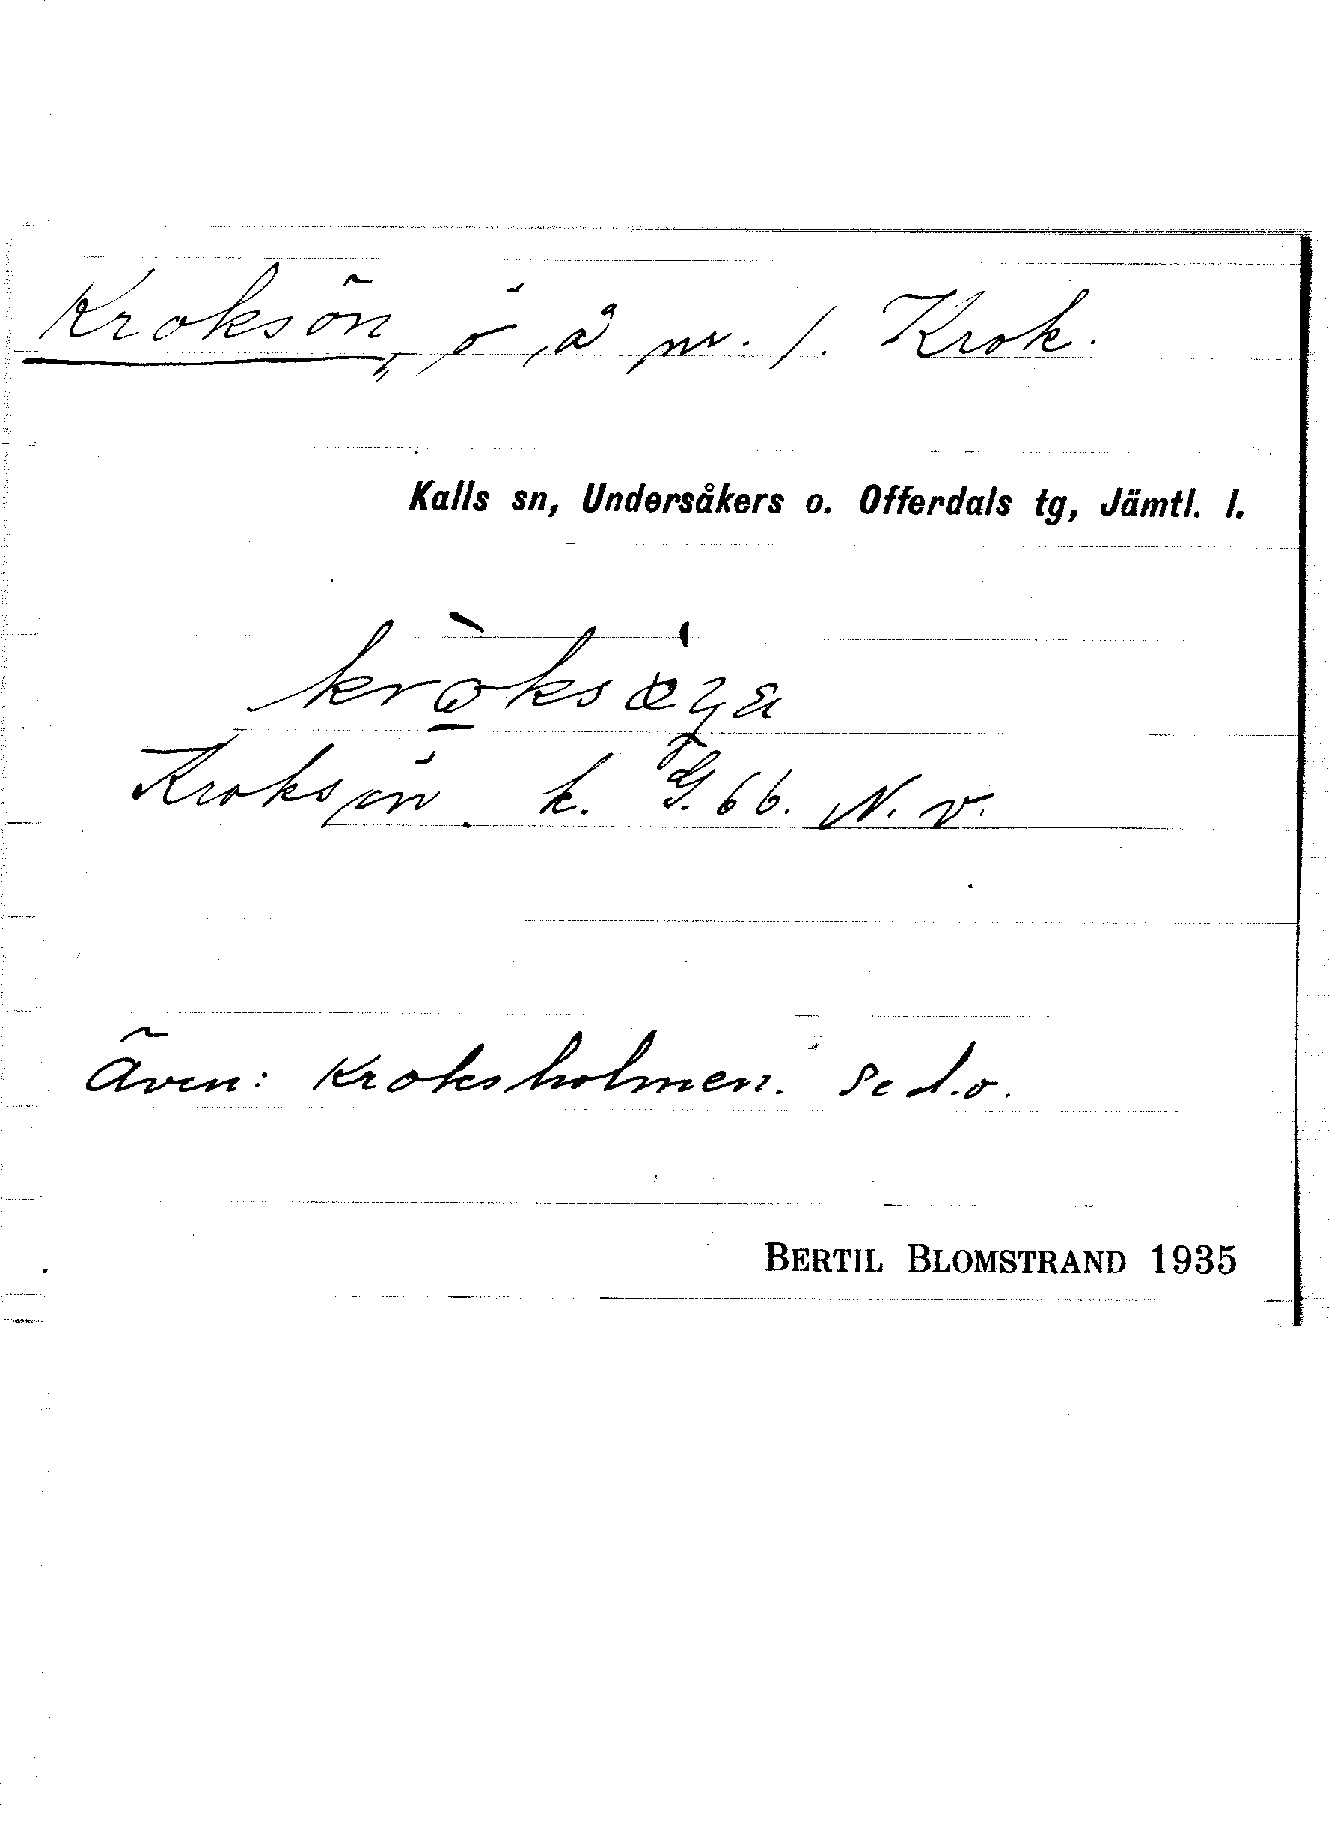 Kroksön, ö å nr. 1. Krok.
Kalls sn, Undersåkers o. Offerdals tg, Jämtl. l.
kròksœya
Kroksön k. G. 66. N. v.
Även: Kroksholmen. Se d.o.
BERTIL BLOMSTRAND 1935